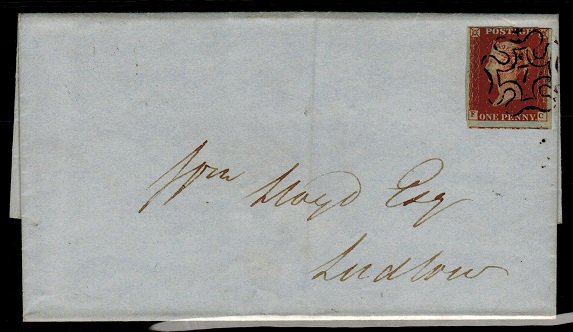 POSTAGE
ONE PENNY
F C
Wm Lloyd Esq
Ludlow